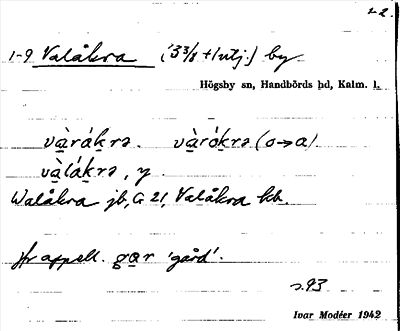 22.
1-9 Valåkra (3 3/8 + 1 utj.) by
Högsby sn, Handbörds hd, Kalm. l.
và̱ráḵrə. và̱róḵrə (o→a)
và̱láḵrə, y
Walåkra jb, G 21, Valåkra kb.
jfr appell. ga̱r 'gård'.
s. 93
Ivar Modéer 1942